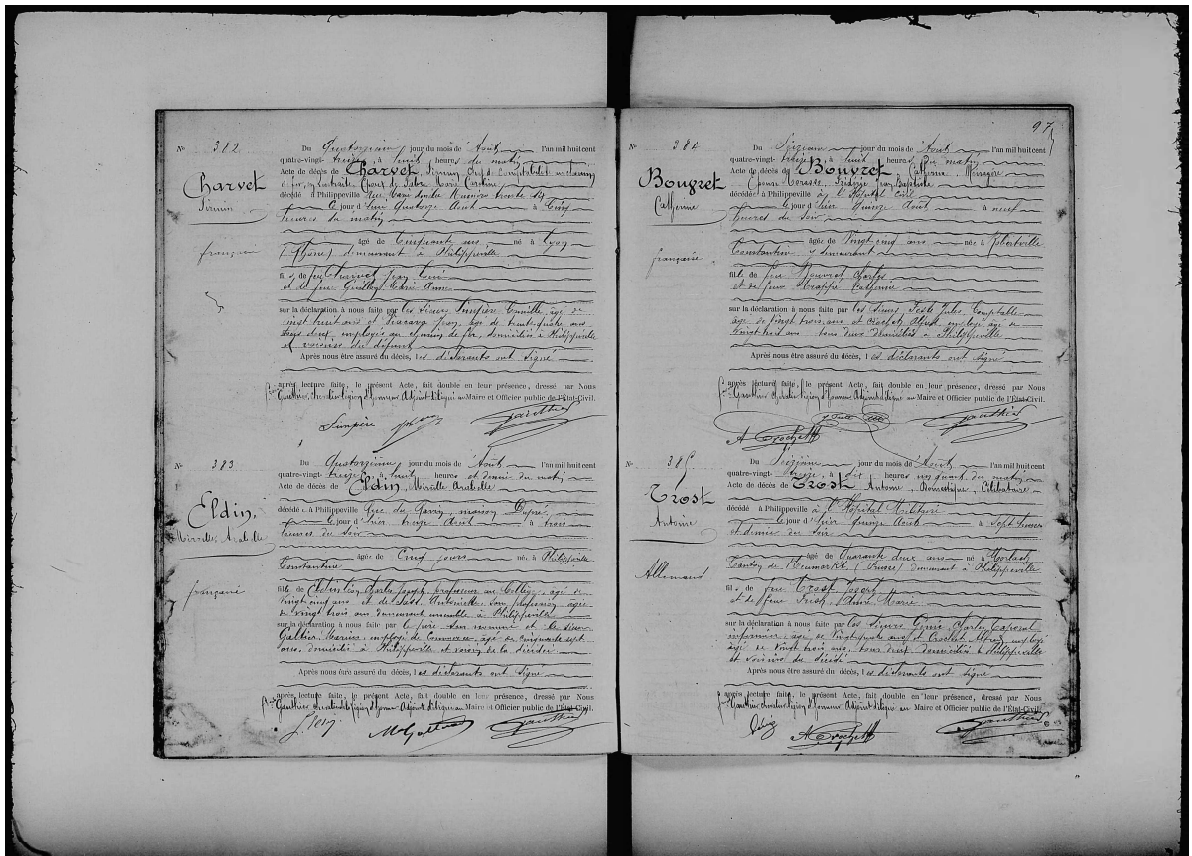 N° 382
Charvet
Firmin
français
Du Quatorzième jour du mois de Août l'an mil huit cent
quatre-vingt-treize, à huit heures du matin
Acte de décès de Charvet, Firmin
décédé à Philippeville
le jour d'hier Quatorze Août à Cinq
heures du matin
âgé de Cinquante ans né à Lyon
(Rhône) demeurant à Philippeville
fils de feu Charvet Jean
et de feue Marie Anne
sur la déclaration à nous faite par les Sieurs Simpère Camille, âgé de
vingt huit ans et Jean, âgé de trente quatre ans
tous deux employés au chemin de fer, domiciliés à Philippeville
et voisins du défunt
Après nous être assuré du décès, les déclarants ont signé
après lecture faite, le présent Acte, fait double en leur présence, dressé par Nous
Gauthier, chevalier Légion d'Honneur Adjoint délégué au Maire et Officier public de l'État-Civil.
Simpère Gauthier
N° 383
Eldin,
Mireille, Arabelle
française
Du Quatorzième jour du mois de Août l'an mil huit cent
quatre-vingt-treize, à huit heures et demie du matin
Acte de décès de Eldin, Mireille Arabelle
décédé à Philippeville maison Dupré
le jour d'hier treize Août à trois
heures du soir
âgée de Cinq jours née à Philippeville
Constantine
fille de Eldin Léon Charles Joseph, professeur au Collège, âgé de
vingt cinq ans et de Antoinette, son profession, âgée
de vingt trois ans demeurant ensemble à Philippeville
sur la déclaration à nous faite par le père sus nommé et le sieur
Galtier Marius, employé de Commerce, âgé de Cinquante sept
ans, domicilié à Philippeville et voisin de la décédée
Après nous être assuré du décès, les déclarants ont signé
après lecture faite, le présent Acte, fait double en leur présence, dressé par Nous
Gauthier chevalier Légion d'Honneur Adjoint délégué au Maire et Officier public de l'État-Civil.
Gauthier
97
N° 384
Bouvret
Catherine
française
Du Seizième jour du mois de Août l'an mil huit cent
quatre-vingt-treize, à huit heures du matin
Acte de décès de Bouvret Catherine, Ménagère
Jean Baptiste
décédée à Philippeville à l'Hôpital Civil
le jour d'hier Quinze Août à neuf
heures du Soir
âgée de Vingt cinq ans née à Robertville
Constantine demeurant
fille de feu Bouvret Charles
et de feue Catherine
sur la déclaration à nous faite par les Sieurs Teste Jules, Comptable
âgé de vingt trois ans et Crochet Alfred employé âgé de
vingt trois ans tous deux domiciliés à Philippeville
Après nous être assuré du décès, les déclarants ont signé
après lecture faite, le présent Acte, fait double en leur présence, dressé par Nous
Gauthier chevalier Légion d'Honneur Adjoint délégué au Maire et Officier public de l'État-Civil.
J Teste Gauthier
A Crochet
N° 385
Trost
Antoine
Allemand
Du Seizième jour du mois de Août l'an mil huit cent
quatre-vingt-treize, à dix heures un quart du matin
Acte de décès de Trost Antoine, Domestique, Célibataire
décédé à Philippeville à l'Hôpital Militaire
le jour d'hier Quinze Août à Sept heures
et demie du Soir
âgé de Quarante deux ans né
Canton de Neumarkt (Prusse) demeurant à Philippeville
fils de feu Trost Joseph
et de feue Anne Marie
sur la déclaration à nous faite par les Sieurs Génie Charles, Caporal
infirmier, âgé de Vingt quatre ans et Crochet Alfred employé
âgé de Vingt trois ans, tous deux domiciliés à Philippeville
et voisins du décédé
Après nous être assuré du décès, les déclarants ont signé
après lecture faite, le présent Acte, fait double en leur présence, dressé par Nous
Gauthier chevalier Légion d'Honneur Adjoint délégué au Maire et Officier public de l'État-Civil.
A Crochet Gauthier